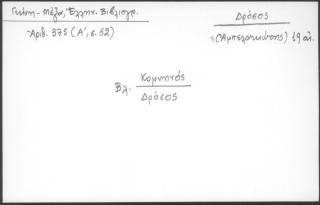 Γκίνη - Μέξα, Ἑλλην. Βιβλιογρ.
Ἀριθ. 375 (Α', σ. 62)
Δρόσος
(Ἀμπελακιώτης) 19 αἰ.
Βλ. Κομνηνός
Δρόσος